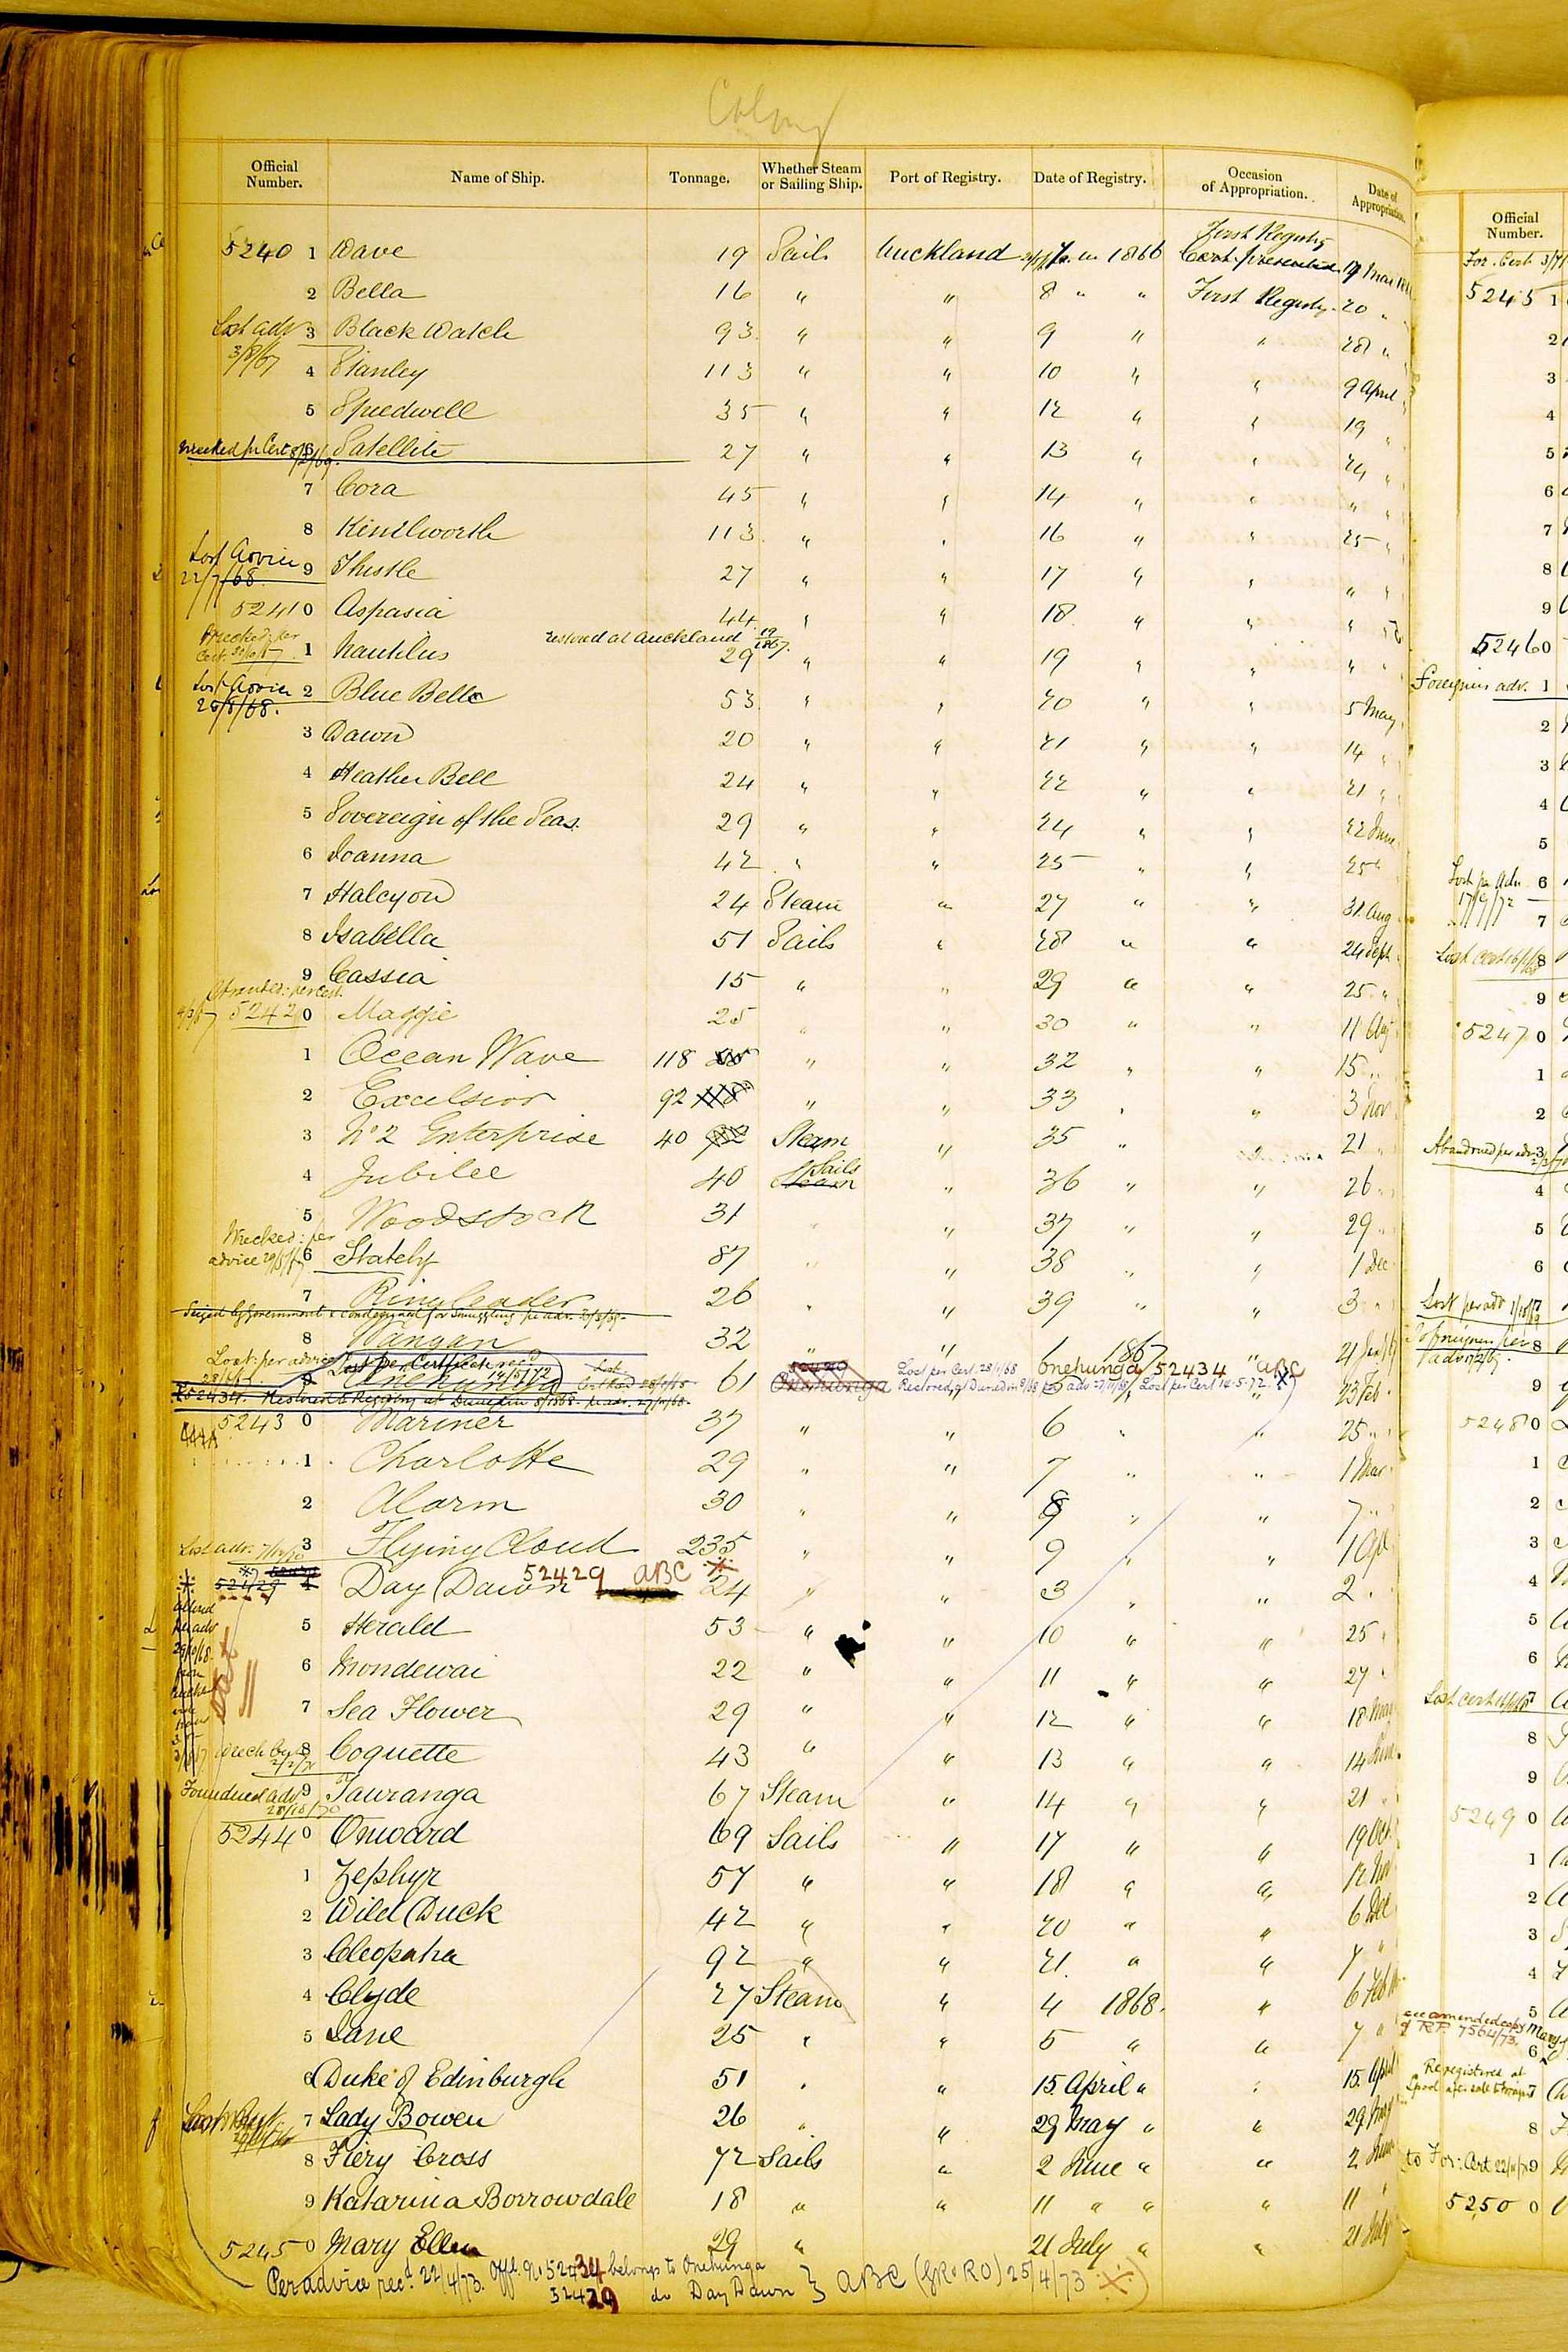 Colony
Official Number. Name of Ship. Tonnage. Whether Steam or Sailing Ship. Port of Registry. Date of Registry. Occasion of Appropriation. Date of Appropriation.
First Registry
5240 1 Wave 19 Sails Auckland 1866 Cert. presented 19 Mar
2 Bella 16 " " 8 " " First Registry 20 "
Lost adv 3 Black Watch 93 " " 9 " " 28 "
3/8/67
4 Stanley 113 " " 10 " " 9 April
5 Speedwell 35 " " 12 " " 19 "
Wrecked pr Cert 6 Satellite 27 " " 13 " " 24 "
7 Cora 45 " " 14 " " " "
8 Kenilworth 113 " " 16 " " 25 "
Lost Advice 9 Thistle 27 " " 17 " " " "
22/7/68
5241 0 Aspasia 44 " " 18 " " "
Wrecked per Cert. 1 Nautilus restored at Auckland 19/1867. 29 " " 19 " " " "
Lost Advice 2 Blue Belle 53 " " 20 " " 5 May
28/8/68.
3 Dawn 20 " " 21 " " 14 "
4 Heather Bell 24 " " 22 " " 21 "
5 Sovereign of the Seas. 29 " " 24 " " 22 June
6 Joanna 42 " " 25 " " 25 "
7 Halcyon 24 Steam " 27 " " 31 Aug
8 Isabella 51 Sails " 28 " " 24 Sept
9 Cassia 15 " " 29 " " 25 "
per Cert.
5242 0 Maggie 25 " " 30 " " 11 Aug
1 Ocean Wave 118 " " 32 " " 15 "
2 Excelsior 92 118 " " 33 " " 3 Nov
3 No 2 Enterprise 40 92 Steam " 35 " " 21 "
4 Jubilee 40 Steam Sails " 36 " " 26 "
5 Woodstock 31 " " 37 " " 29 "
Wrecked: per
advice 29/5/67 6 Stately 87 " " 38 " " 1 Dec
7 Ringleader 26 " " 39 " " 3 "
Seized by Government & condemned for Smuggling per adv.
8 Wangan 32 " " 1 1867 " 21 Jany
Lost: per advice Lost per Certificate rec'd 14/5/72
9 Onehunga 61 52420 Onehunga Lost per Cert 28/1/68 Onehunga 52434 ABC
Restored of Dunedin 8/68 per adv 27/11/68. Lost per Cert 14.5.72. 23 Feb
52434. Restored & Registry at Dunedin 8/1868 pr adv. 27/11/68.
5243 0 Mariner 37 " " 6 " " 25 "
1 Charlotte 29 " " 7 " " 1 Mar
2 Alarm 30 " " 8 " " 7 "
Lost adv. 3 Flying Cloud 235 " " 9 " " 1 Apl
52429 4 Day Dawn 52429 ABC 24 " " 3 " " 2 "
altered
per adv
29/10/68
from
5 Herald 53 " " 10 " " 25 "
6 Mondewai 22 " " 11 " " 27 "
7 Sea Flower 29 " " 12 " " 18 May
8 Coquette 43 " " 13 " " 14 June
Foundered adv 9 Tauranga 67 Steam " 14 " " 21 "
28/10/70
5244 0 Onward 69 Sails " 17 " " 19 Oct
1 Zephyr 57 " " 18 " " 12 Nov
2 Wild Duck 42 " " 20 " " 6 Dec
3 Cleopatra 92 " " 21 " " 7 "
4 Clyde 27 Steam " 4 1868. " 6 Feb
5 Lane 25 " " 5 " " 7 "
6 Duke of Edinburgh 51 " " 15 April " " 15 April
7 Lady Bowen 26 " " 29 May " " 29 May
8 Fiery Cross 72 Sails " 2 June " " 2 June
9 Katarina Borrowdale 18 " " 11 " " " 11 "
5245 0 Mary Ellen 29 " 21 July " " 21 July
Per advice rec'd 22/4/73. Offl. No 52434 belongs to Onehunga
52429 do Day Dawn } ABC (for RO) 25/4/73
Official Number.
For. Cert
5245 1
2
3
4
5
6
7
8
9
52460
Foreigners adv. 1
2
3
4
5
Lost per Adv. 6
17/9/72
7
Lost cert 8
9
5247 0
1
2
Abandoned per adv 3
4
5
6
Lost per adv 7
To foreigners per 8
adv
9
5248 0
1
2
3
4
5
6
Lost cert 7
8
9
5249 0
1
2
3
4
5
see amended copy
of RP. 7564/73.
6
Re registered at
Lpool after sale to foreigners 7
8
to For: Cert 9
5250 0